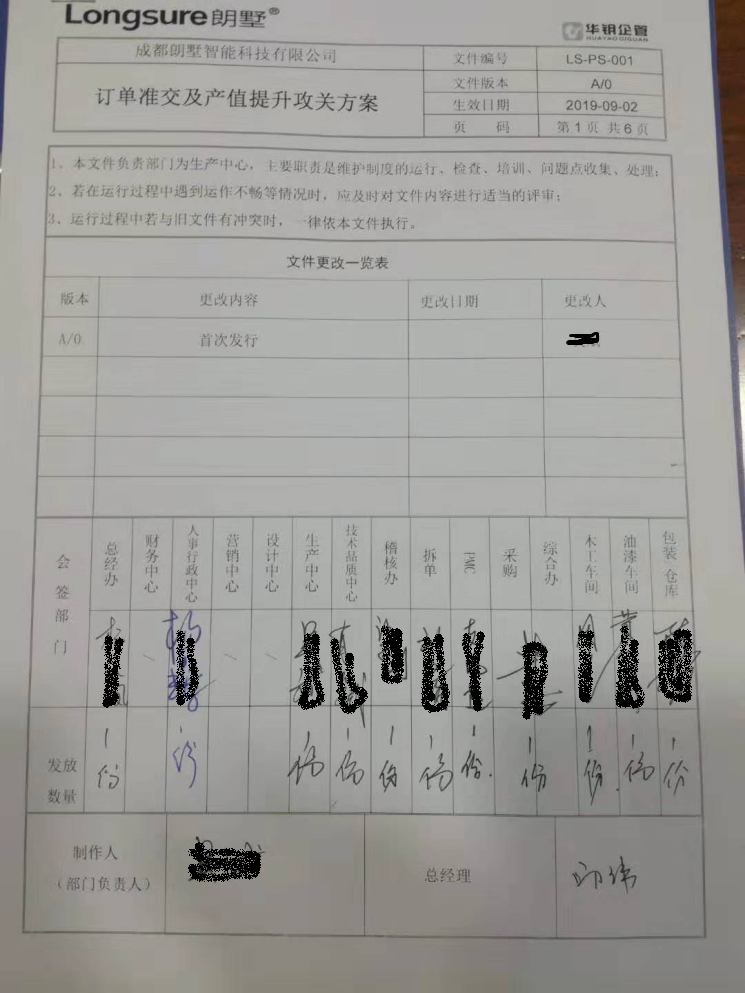 Longsure朗墅®
华钥企管
HUAYAOQIGUAN
成都朗墅智能科技有限公司
文件编号 LS-PS-001
订单准交及产值提升攻关方案
文件版本 A/0
生效日期 2019-09-02
页 码 第 1 页 共 6 页
1、本文件负责部门为生产中心，主要职责是维护制度的运行、检查、培训、问题点收集、处理；
2、若在运行过程中遇到运作不畅等情况时，应及时对文件内容进行适当的评审；
3、运行过程中若与旧文件有冲突时，一律依本文件执行。
文件更改一览表
版本 更改内容 更改日期 更改人
A/0 首次发行
会签部门 总经办 财务中心 人事行政中心 营销中心 设计中心 生产中心 技术品质中心 稽核办 拆单 PMC 采购 综合办 木工车间 油漆车间 包装 仓库
发放数量 1份 1份 1份 1份 1份 1份 1份 1份 1份 1份 1份
制作人
（部门负责人）
总经理